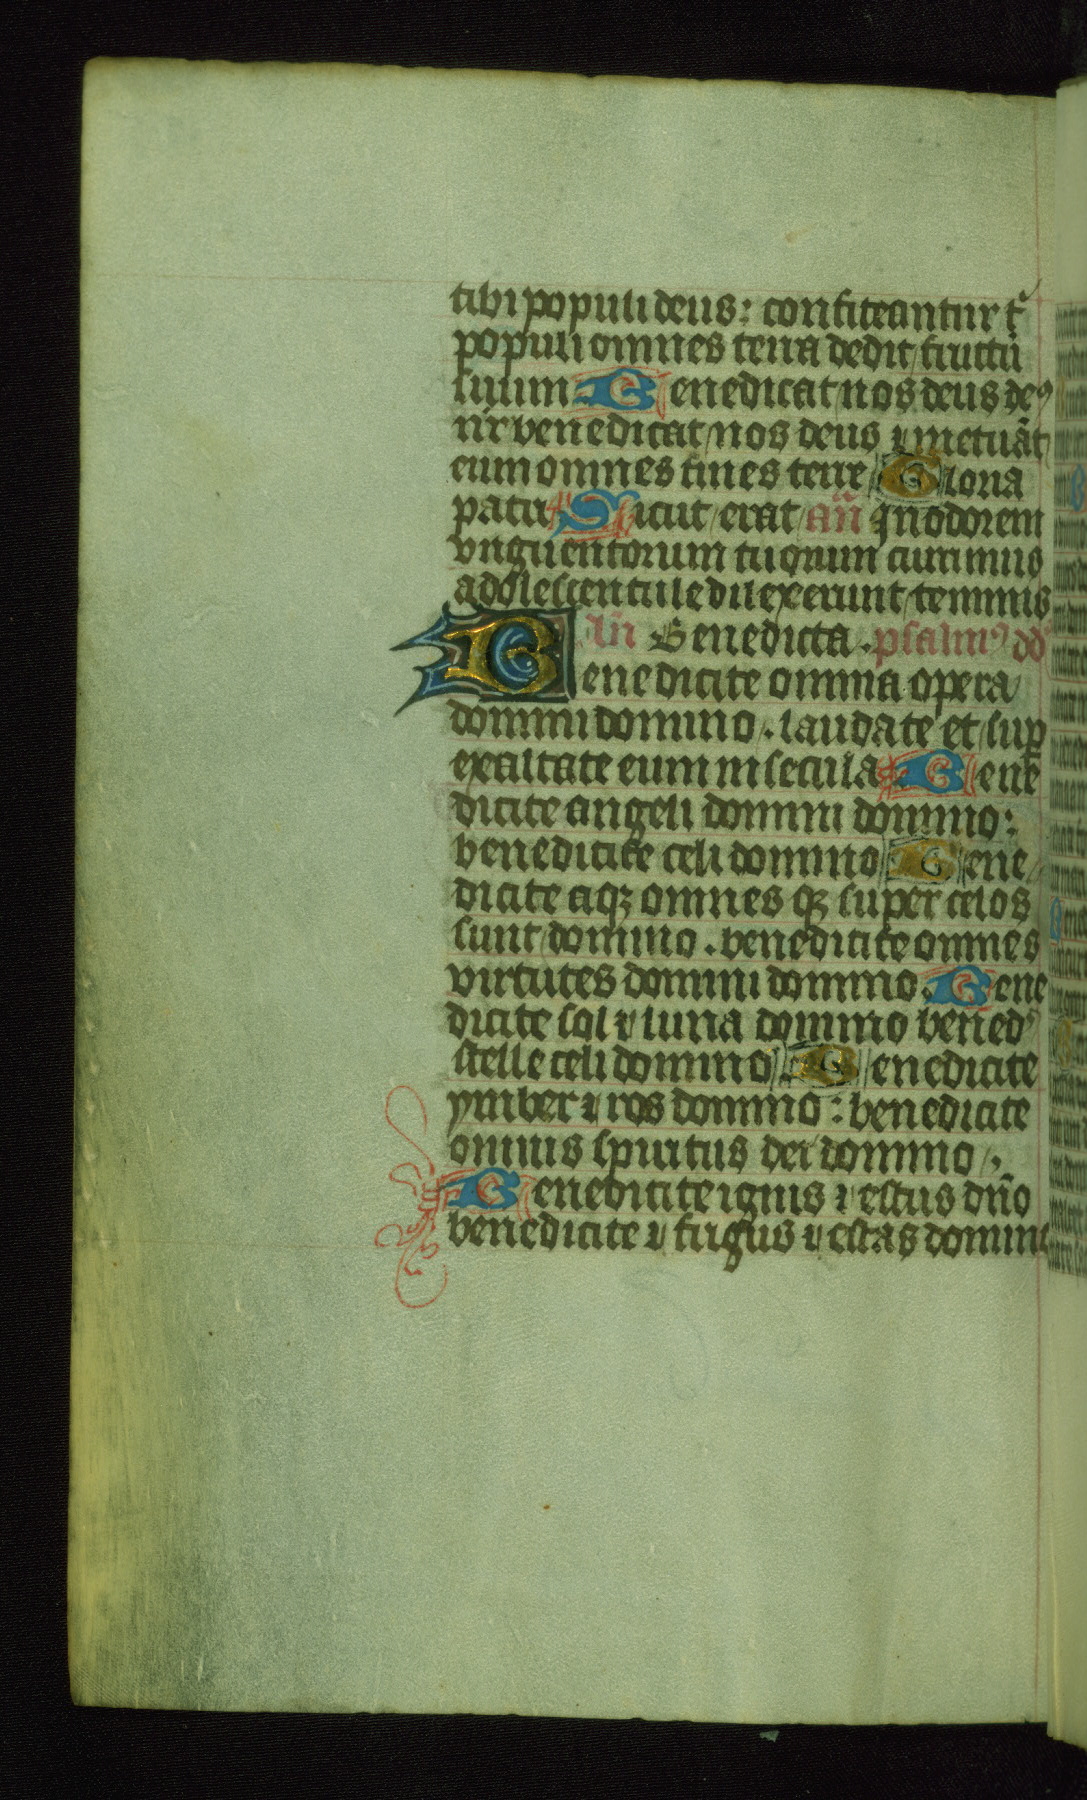 tibi populi deus: confiteantur t᷑
populi omnes terra dedit fructū
suum Benedicat nos deus de⁹
nr̄ benedicat nos deus ⁊ metuāt
eum omnes fines terre Gloria
patri Sicut erat an̄ In odorem
vnguentorum tuorum currimus
adolescentule dilexerunt te nimis
An̄ Benedicta . psalm⁹ dd
Benedicite omnia opera
domini domino . laudate et sup̄
exaltate eum in secula Bene
dicite angeli domini domino :
benedicite celi domino Bene
dicite aqꝫ omnes qꝫ super celos
sunt domino . benedicite omnes
virtutes domini domino . Bene
dicite sol ⁊ luna domino bened᷑
stelle celi domino Benedicite
ymber ⁊ ros domino : benedicite
omnis spiritus dei domino .
Benedicite ignis ⁊ estus dn̄o
benedicite ⁊ frigus ⁊ estas domin